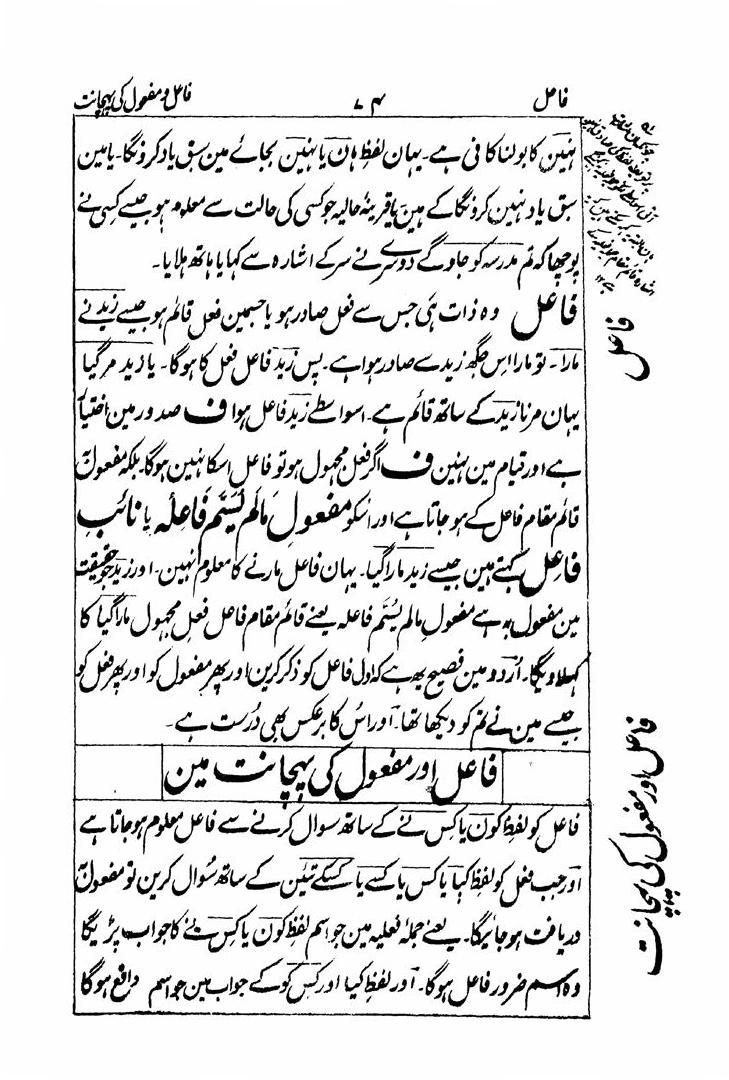 فاعل ۷۴ فاعل و مفعول کی پہچانت
نہین کا بولنا کافی ہے۔ یہان لفظِ ہان یا نہین بجائے مین سبق یاد کرونگا۔ یا مین
سبق یاد نہین کرونگا کے ہین یا قرینۂ حالیہ جو کسی کی حالت سے معلوم ہو جیسے کسی نے
پوچھا کہ تم مدرسہ کو جاوگے دوسرے نے سر کے اشارہ سے کہا یا ہاتھ ہلایا۔
فاعل وہ ذات ہی جس سے فعل صادر ہو یا جسمین فعل قائم ہو جیسے زید نے
مارا۔ تو مارا اِس جگھ زید سے صادر ہوا ہے۔ پس زید فاعل فعل کا ہوگا۔ یا زید مر گیا
یہان مرنا زید کے ساتھ قائم ہے۔ اسواسطے زید فاعل ہوا ف صدور مین اختیار
ہے اور قیام مین نہین ف اگر فعل مجہول ہو تو فاعل اسکا نہین ہوگا۔ بلکہ مفعول بہ
قائم مقام فاعل کے ہو جاتا ہے اور اسکو مفعولِ مالم یُسَمَّ فَاعِلُہ یا نائبِ
فاعِل کہتے ہین جیسے زید مارا گیا۔ یہان فاعل مارنے کا معلوم نہین۔ اور زید جو حقیقت
مین مفعول بہ ہے مفعولِ مالم یُسَمَّ فاعلہ یعنے قائم مقام فاعل فعلِ مجہول مارا گیا کا
کہلاویگا۔ اُردو مین فصیح یہ ہے کہ اول فاعل کو ذکر کرین اور پھر مفعول کو اور پھر فعل کو
جیسے مین نے تم کو دیکھا تھا۔ اور اُس کا برعکس بھی دُرست ہے۔
فاعل اور مفعول کی پہچانت مین
فاعل کو لفظِ کون یا کِس نے کے ساتھ سوال کرنے سے فاعل معلوم ہو جاتا ہے
اور جب فعل کو لفظِ کیا یا کس یا کسے یا کسکے تئین کے ساتھ سُوال کرین تو مفعول بہ
دریافت ہو جائیگا۔ یعنے جملہ فعلیہ مین جو اسم لفظِ کون یا کِس نے کا جواب پڑیگا
وہ اسم ضرور فاعل ہوگا۔ اور لفظِ کیا اور کِس کو کے جواب مین جو اسم واقع ہوگا
فاعل
فاعل اور مفعول کی پہچانت